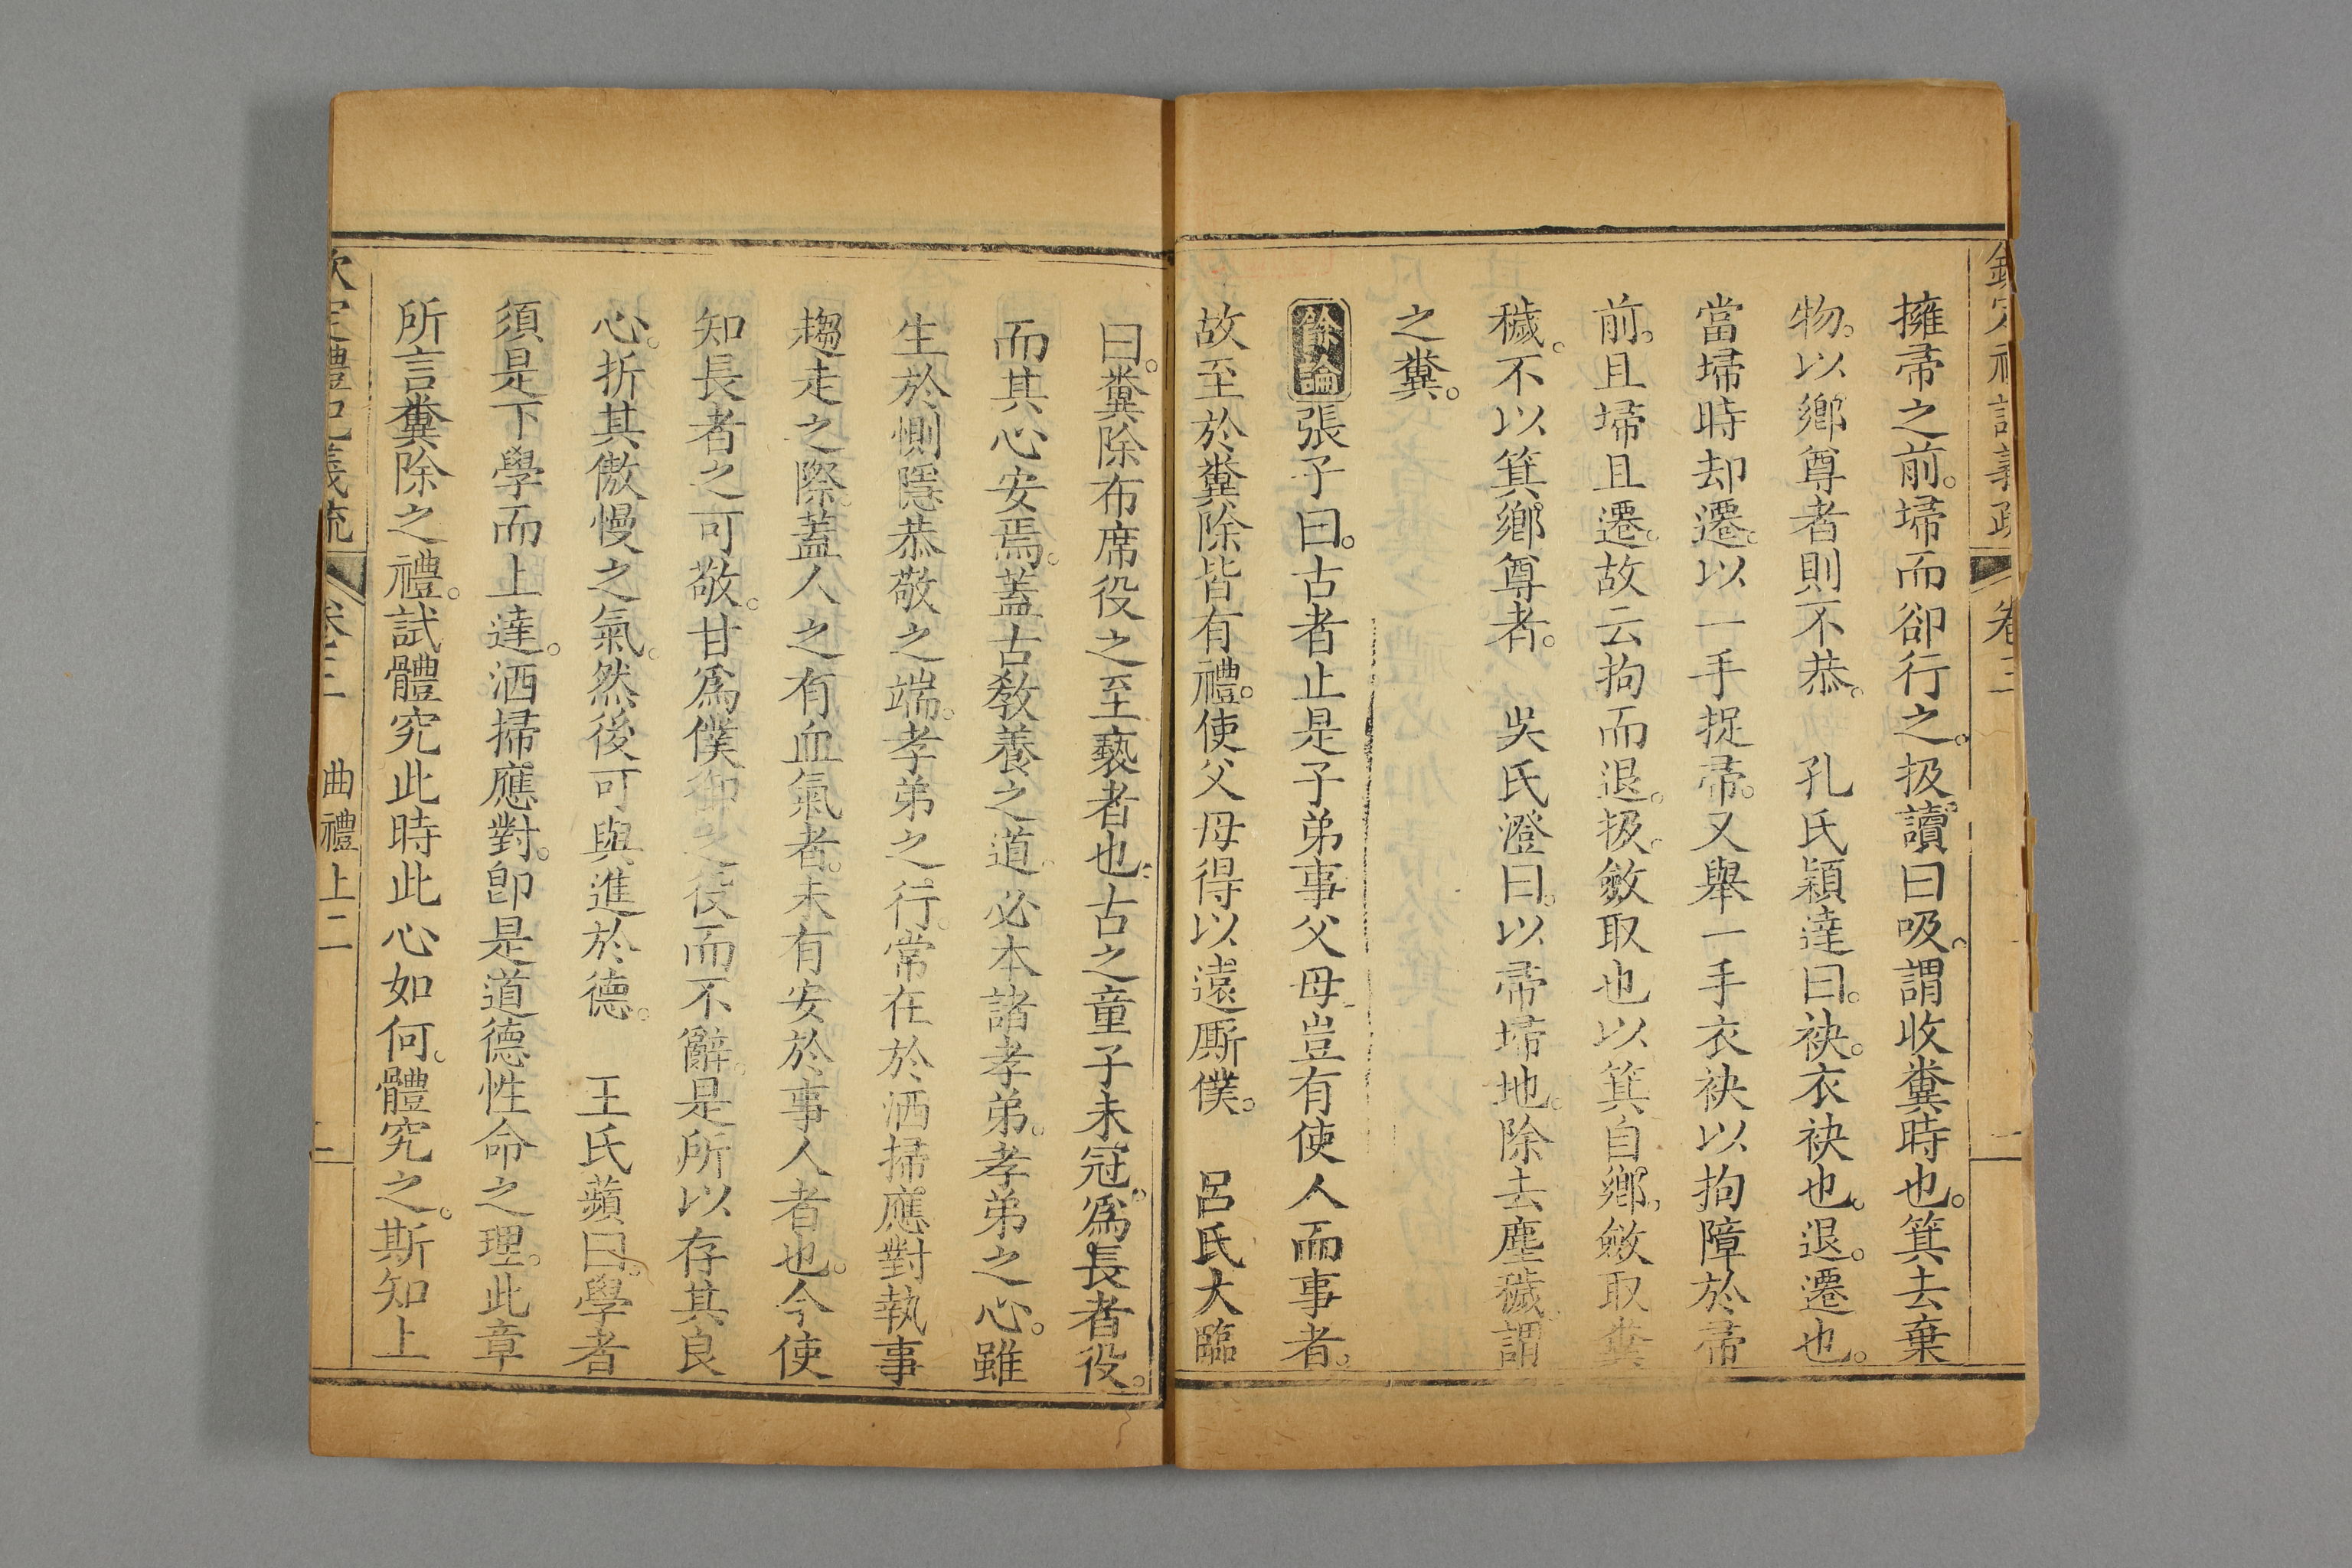 欽定禮記義疏 卷三 一
擁帚之前。埽而卻行之。扱讀曰吸。謂收糞時也。箕去棄
物。以鄉尊者則不恭。 孔氏穎達曰。袂。衣袂也。退。遷也。
當埽時却遷。以一手捉帚。又舉一手衣袂以拘障於帚
前。且埽且遷。故云拘而退。扱。斂取也以箕自鄉。斂取糞
穢。不以箕鄉尊者。 吳氏澄曰。以帚埽地。除去塵穢。謂
之糞。
餘論張子曰。古者止是子弟事父母豈有使人而事者。
故至於糞除皆有禮。使父母得以遠厮僕。 呂氏大臨
曰。糞除布席役之至褻者也古之童子未冠。爲長者役。
而其心安焉。蓋古敎養之道。必本諸孝弟。孝弟之心。雖
生於惻隱恭敬之端。孝弟之行。常在於洒掃應對執事
趨走之際。蓋人之有血氣者。未有安於事人者也。今使
知長者之可敬。甘爲僕御之役而不辭。是所以存其良
心。折其傲慢之氣。然後可與進於德。 王氏蘋曰。學者
須是下學而上達。洒掃應對。卽是道德性命之理。此章
所言糞除之禮。試體究此時此心如何。體究之。斯知上
欽定禮記義疏 卷三 曲禮上二 二